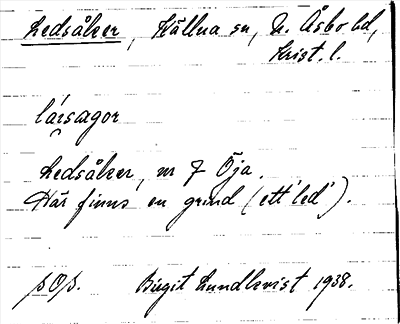 Ledsåker, Källna sn, N. Åsbo hd,
Krist. l.
Ledsåker, nr 7 Öja.
Här finns en grind (ett 'led').
Birgit Lundkvist 1938.